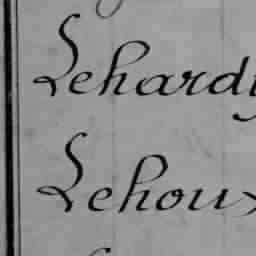 Lehardy
Lehoux